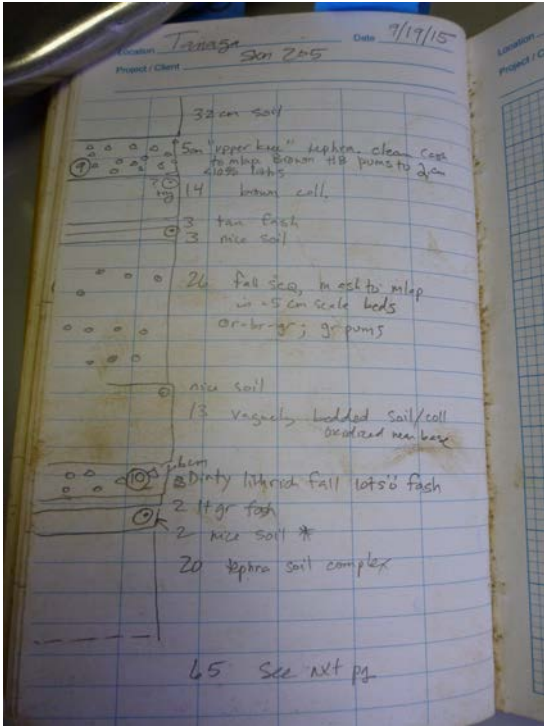 Location Tanaga Date 9/19/15
Project / Client Stn 265
32 cm soil
9 5cm "upper knee" tephra. clean cash
to mlap Brown HB pums to 2cm
14 brown coll.
3 tan fash
3 nice soil
26 fall seq, m ash to mlap
in ~5 cm scale beds
or-br-gr; gr pums
nice soil
13 vaguely bedded soil/coll
oxidized near base
6cm
10 8 Dirty lithrich fall lots o' fash
2 lt gr fash
2 nice soil *
20 tephra soil complex
65 See nxt pg
Location
Project / C